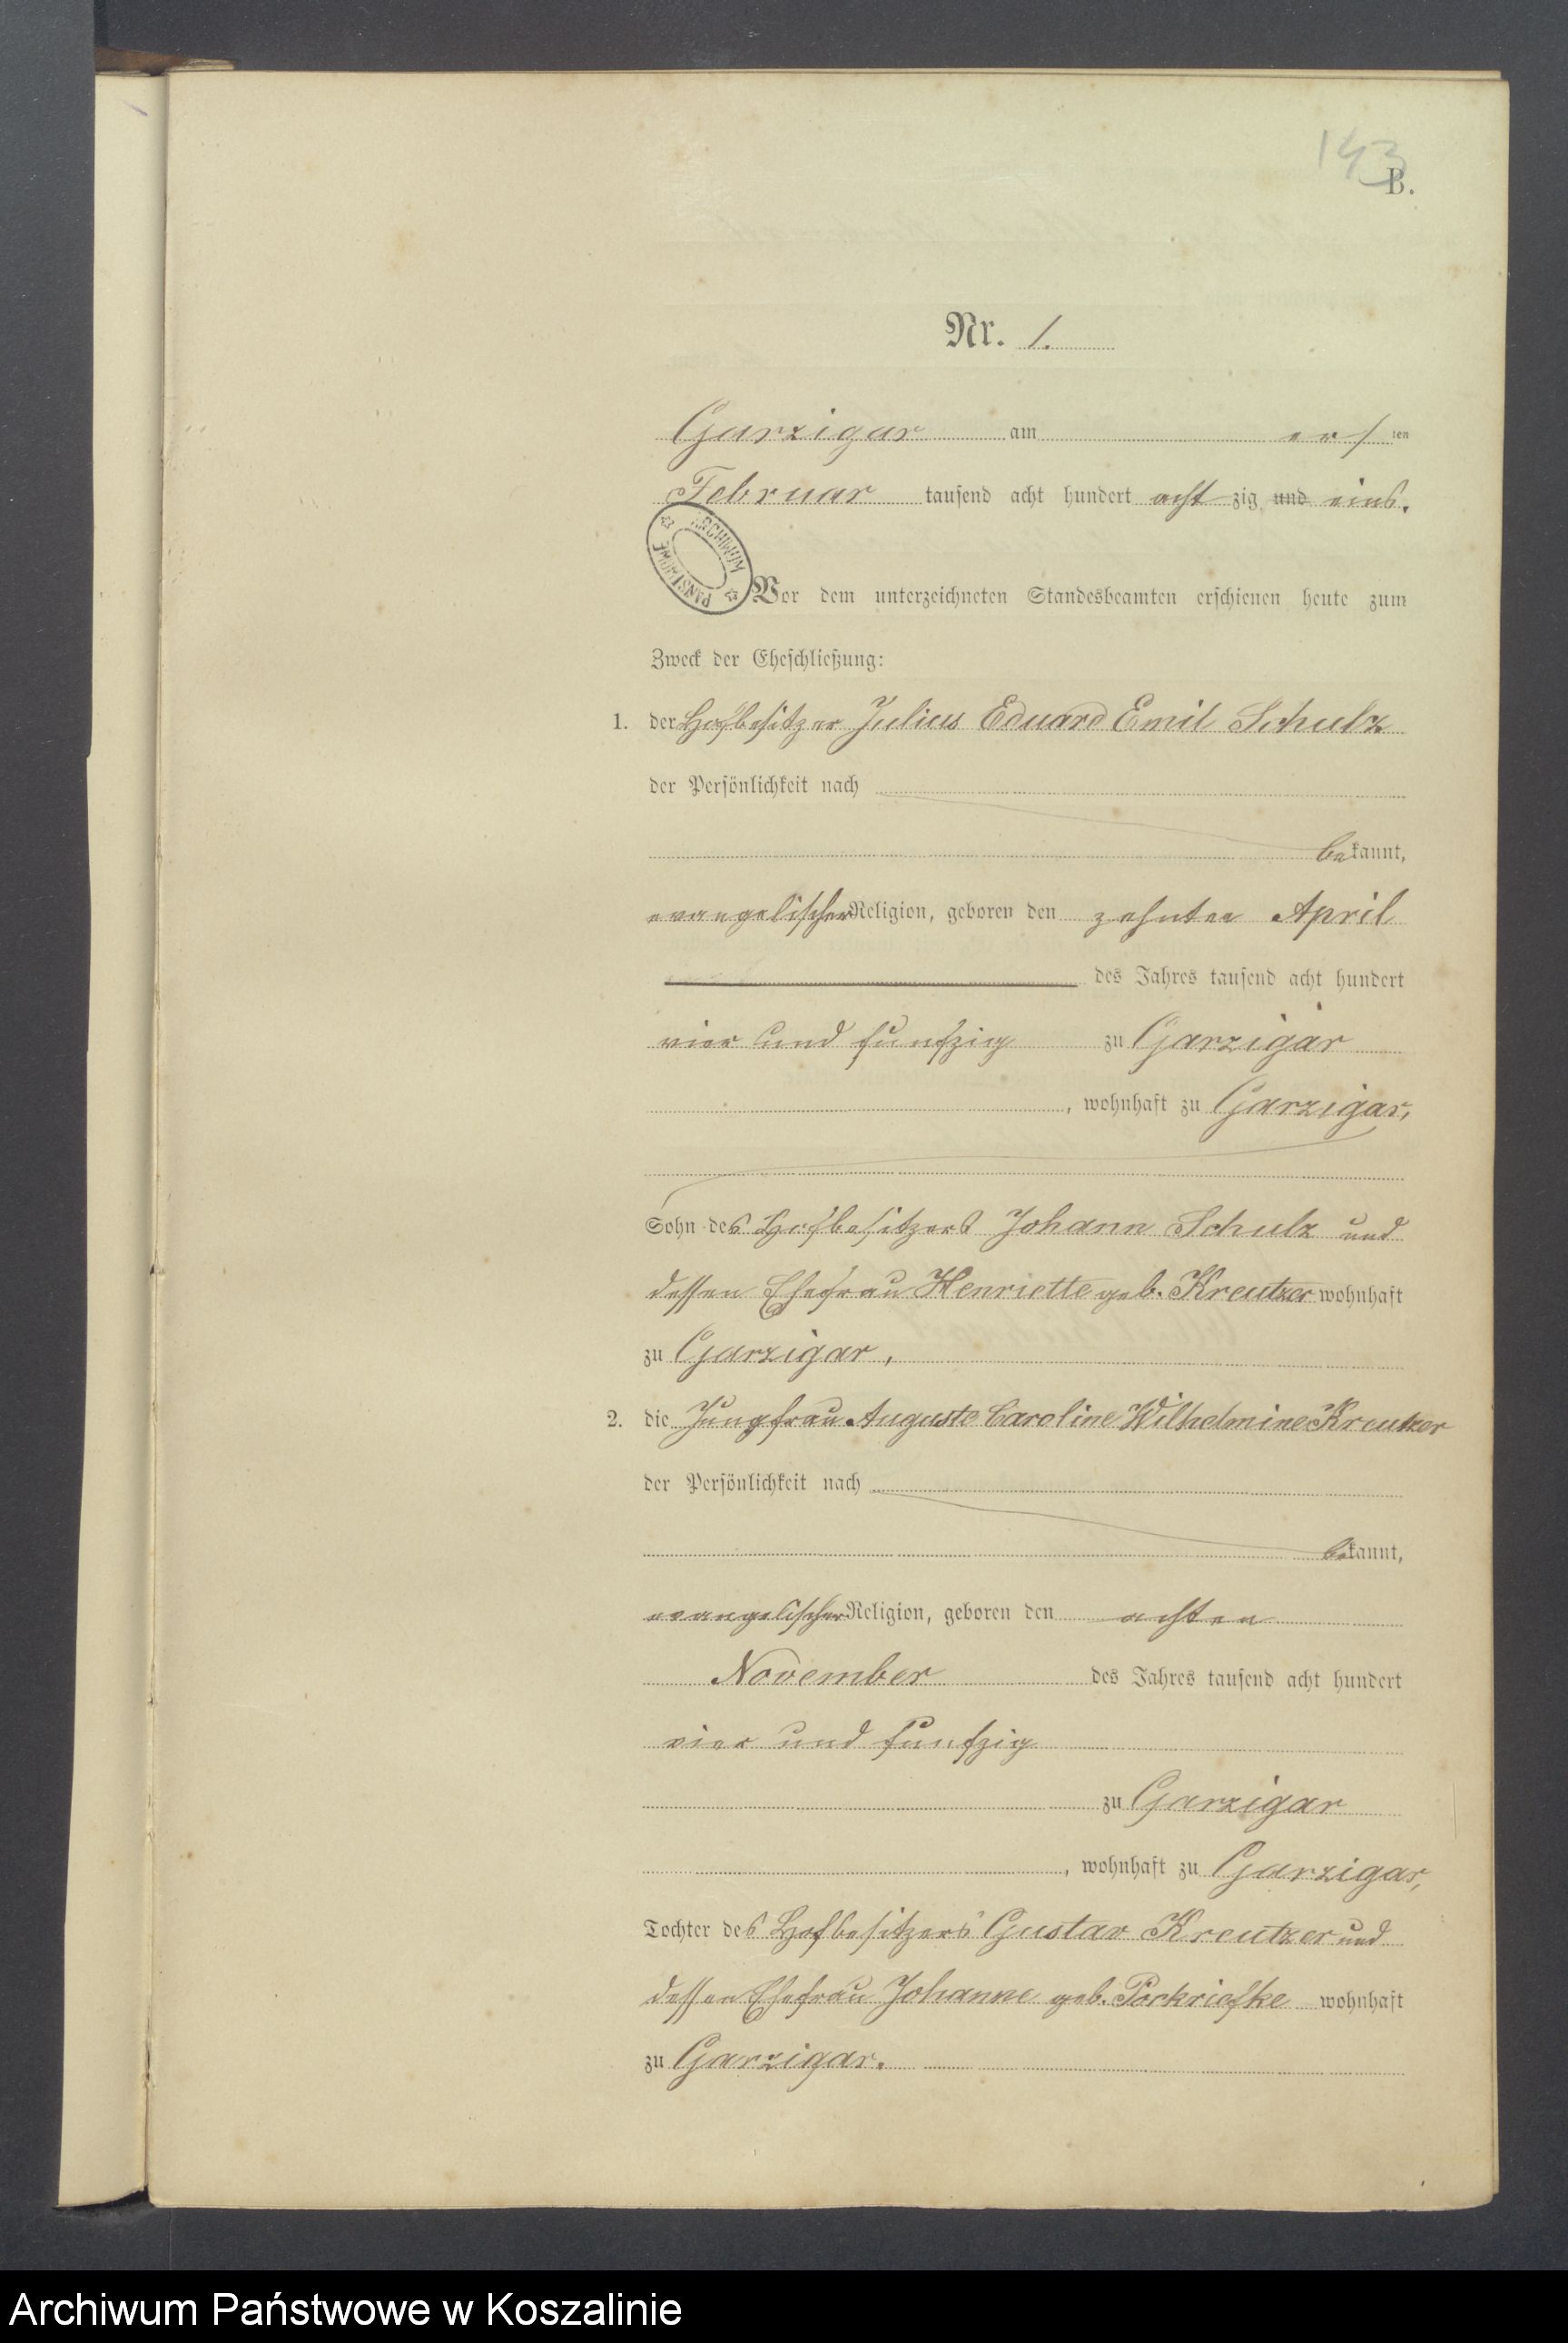 143
B.
Nr. 1.
Garzigar am ersten
Februar tausend acht hundert achtzig und eins.
ARCHIWUM PAŃSTWOWE
Vor dem unterzeichneten Standesbeamten erschienen heute zum
Zweck der Eheschließung:
1. der Hofbesitzer Julius Eduard Emil Schulz
der Persönlichkeit nach
bekannt,
evangelischer Religion, geboren den zehnten April
des Jahres tausend acht hundert
vier und funfzig zu Garzigar
, wohnhaft zu Garzigar,
Sohn des Hofbesitzers Johann Schulz und
dessen Ehefrau Henriette geb. Kreutzer wohnhaft
zu Garzigar,
2. die Jungfrau Auguste Caroline Wilhelmine Kreutzer
der Persönlichkeit nach
bekannt,
evangelischer Religion, geboren den achten
November des Jahres tausend acht hundert
vier und funfzig
zu Garzigar
, wohnhaft zu Garzigar,
Tochter des Hofbesitzers Gustav Kreutzer und
dessen Ehefrau Johanne geb. Pockriefke wohnhaft
zu Garzigar.
Archiwum Państwowe w Koszalinie